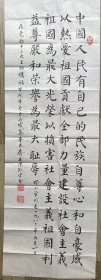 中國人民有自己的民族自尊心和自豪感
以熱愛祖國貢獻全部力量建設社會主義
祖國為最大光榮以損害社會主義祖國利
益尊嚴和榮譽為最大恥辱